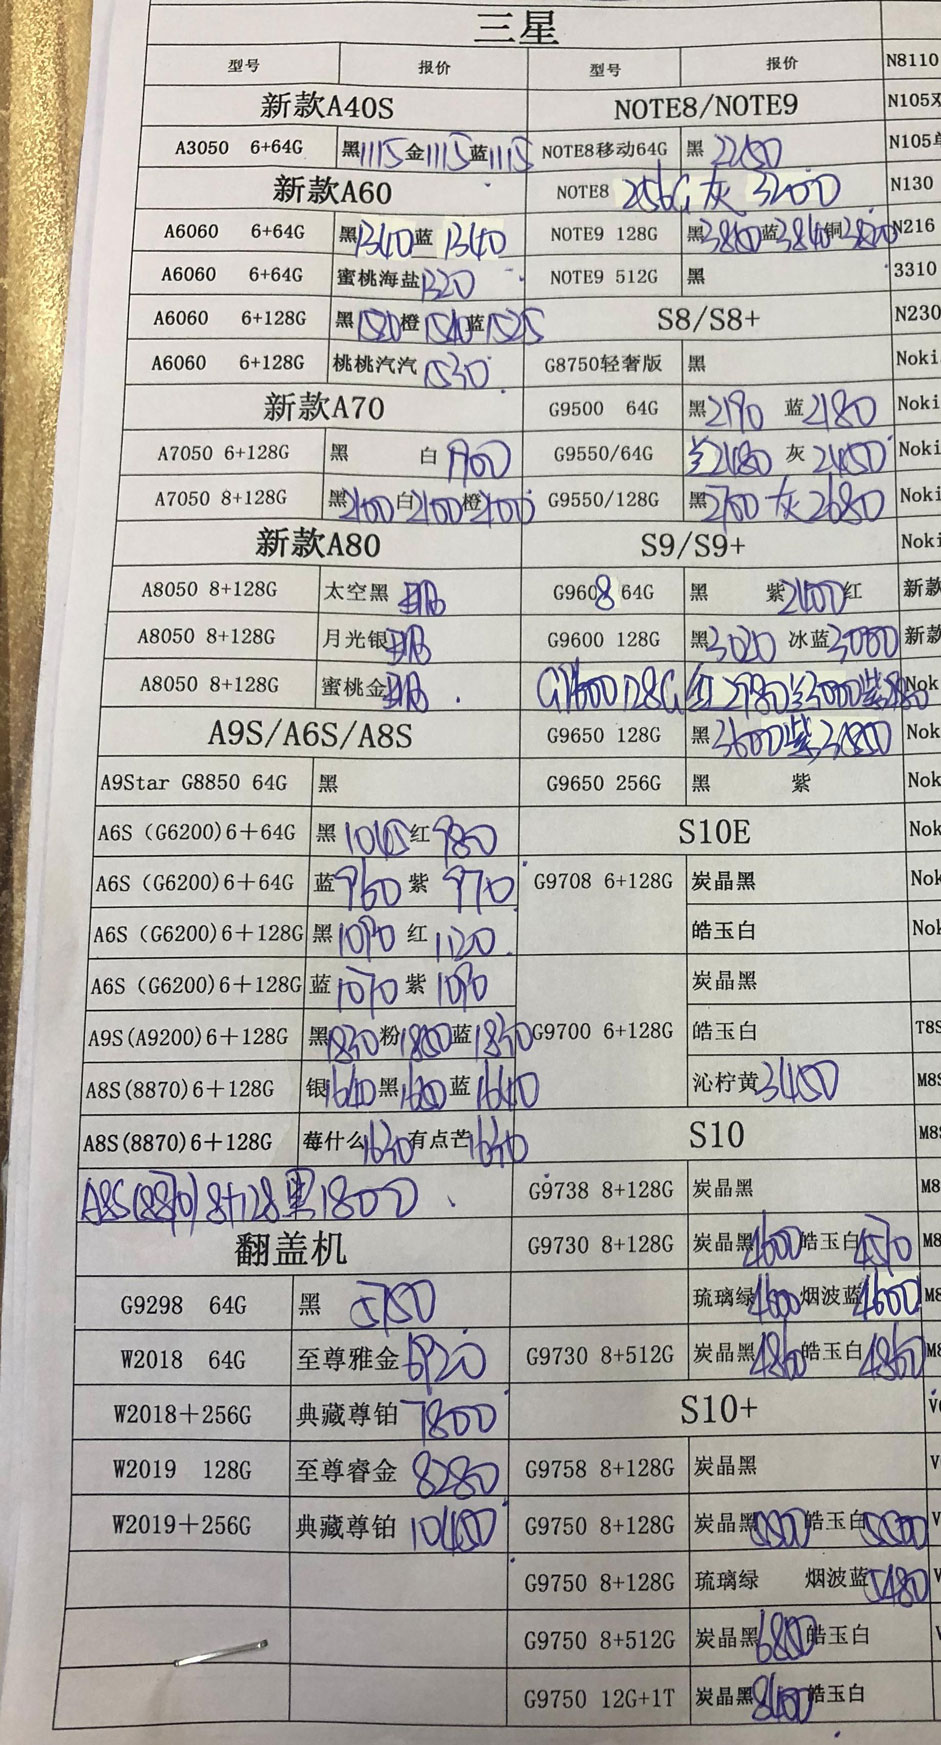 三星
型号 报价 型号 报价 N8110
新款A40S NOTE8/NOTE9 N105双
A3050 6+64G 黑1115金1115蓝1115 NOTE8移动64G 黑 2250 N105单
新款A60 NOTE8 256G 灰 3200 N130
A6060 6+64G 黑1340蓝 1340 NOTE9 128G 黑3860蓝3840铜 N216
A6060 6+64G 蜜桃海盐1320 NOTE9 512G 黑 3310
A6060 6+128G 黑1520橙1540蓝1525 S8/S8+ N230
A6060 6+128G 桃桃汽汽1530 G8750轻奢版 黑 Noki
新款A70 G9500 64G 黑2190 蓝2180 Noki
A7050 6+128G 黑 白1900 G9550/64G 金2480 灰 2450 Noki
A7050 8+128G 黑2100白2100橙2100 G9550/128G 黑2700灰2680 Noki
新款A80 S9/S9+ Noki
A8050 8+128G 太空黑 G9608 64G 黑 紫2400红 新款
A8050 8+128G 月光银 G9600 128G 黑3020 冰蓝3000 新款
A8050 8+128G 蜜桃金 G9600 128G 红2980金3000紫 Nok
A9S/A6S/A8S G9650 128G 黑3600紫 Nok
A9Star G8850 64G 黑 G9650 256G 黑 紫 Nok
A6S（G6200)6＋64G 黑 红980 S10E Nok
A6S（G6200)6＋64G 蓝960 紫 970 G9708 6+128G 炭晶黑 Nok
A6S（G6200)6＋128G 黑1090 红1120 皓玉白 Nok
A6S（G6200)6＋128G 蓝1070 紫1090 炭晶黑
A9S(A9200)6＋128G 黑1830粉1800蓝1830 G9700 6+128G 皓玉白 T8S
A8S(8870)6＋128G 银1640黑1680蓝1640 沁柠黄3450 M8S
A8S(8870)6＋128G 莓什么1630有点芒1630 S10 M8S
A8S(8870) 8+128黑1800 G9738 8+128G 炭晶黑 M8
翻盖机 G9730 8+128G 炭晶黑4600皓玉白4570 M8
G9298 64G 黑 5150 琉璃绿4600烟波蓝4600 M8
W2018 64G 至尊雅金6920 G9730 8+512G 炭晶黑4860皓玉白4860 M8
W2018＋256G 典藏尊铂7800 S10+
W2019 128G 至尊睿金 8280 G9758 8+128G 炭晶黑
W2019＋256G 典藏尊铂 10450 G9750 8+128G 炭晶黑5500皓玉白5500
G9750 8+128G 琉璃绿 烟波蓝5480
G9750 8+512G 炭晶黑6800皓玉白
G9750 12G+1T 炭晶黑8400皓玉白